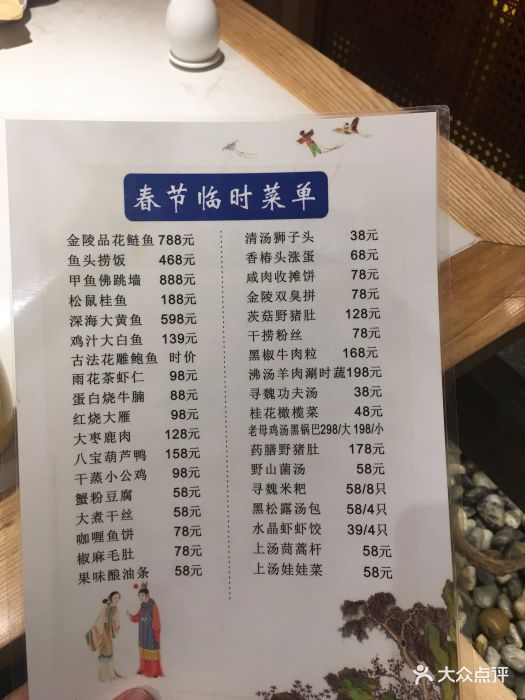 春节临时菜单
金陵品花鲢鱼 788元
鱼头捞饭 468元
甲鱼佛跳墙 888元
松鼠桂鱼 188元
深海大黄鱼 598元
鸡汁大白鱼 139元
古法花雕鲍鱼 时价
雨花茶虾仁 98元
蛋白烧牛腩 88元
红烧大雁 98元
大枣鹿肉 128元
八宝葫芦鸭 158元
干蒸小公鸡 98元
蟹粉豆腐 58元
大煮干丝 58元
咖喱鱼饼 78元
椒麻毛肚 78元
果味酿油条 58元
清汤狮子头 38元
香椿头涨蛋 68元
咸肉收摊饼 78元
金陵双臭拼 78元
茨菇野猪肚 128元
干捞粉丝 78元
黑椒牛肉粒 168元
沸汤羊肉涮时蔬198元
寻魏功夫汤 38元
桂花橄榄菜 48元
老母鸡汤黑锅巴298/大 198/小
药膳野猪肚 178元
野山菌汤 58元
寻魏米粑 58/8只
黑松露汤包 58/4只
水晶虾虾饺 39/4只
上汤茼蒿杆 58元
上汤娃娃菜 58元
大众点评